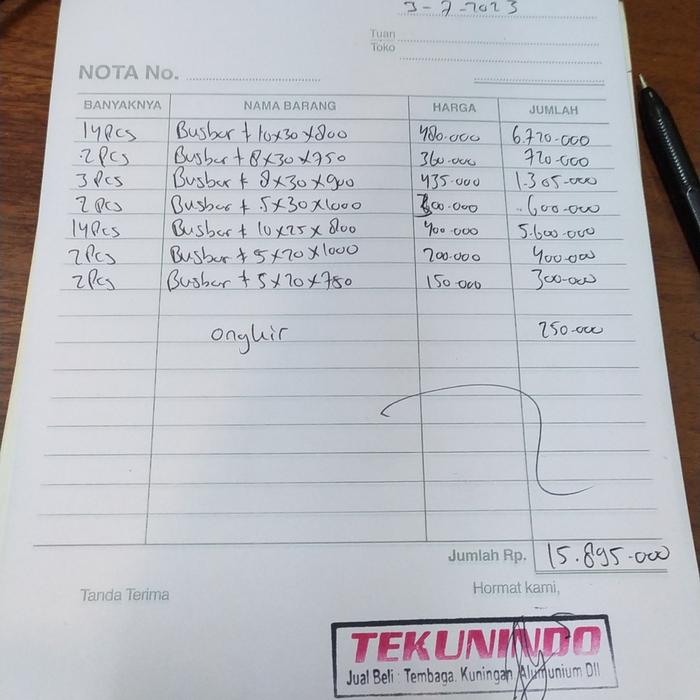 3-7-2023
Tuan
Toko
NOTA No.
BANYAKNYA NAMA BARANG HARGA JUMLAH
14 Pcs Busbar t 10x30x800 480.000 6.720.000
2 Pcs Busbar t 8x30x750 360.000 720.000
3 Pcs Busbar t 8x30x900 435.000 1.305.000
2 Pcs Busbar t 5x30x1000 300.000 600.000
14 Pcs Busbar t 10x25x800 400.000 5.600.000
2 Pcs Busbar t 5x20x1000 200.000 400.000
2 Pcs Busbar t 5x20x750 150.000 300.000
Ongkir 250.000
Jumlah Rp. 15.895.000
Tanda Terima Hormat kami,
TEKUNINDO
Jual Beli : Tembaga. Kuningan Alumunium Dll